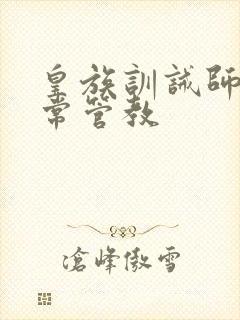 皇族訓誡師日
常管教
滄峰傲雪